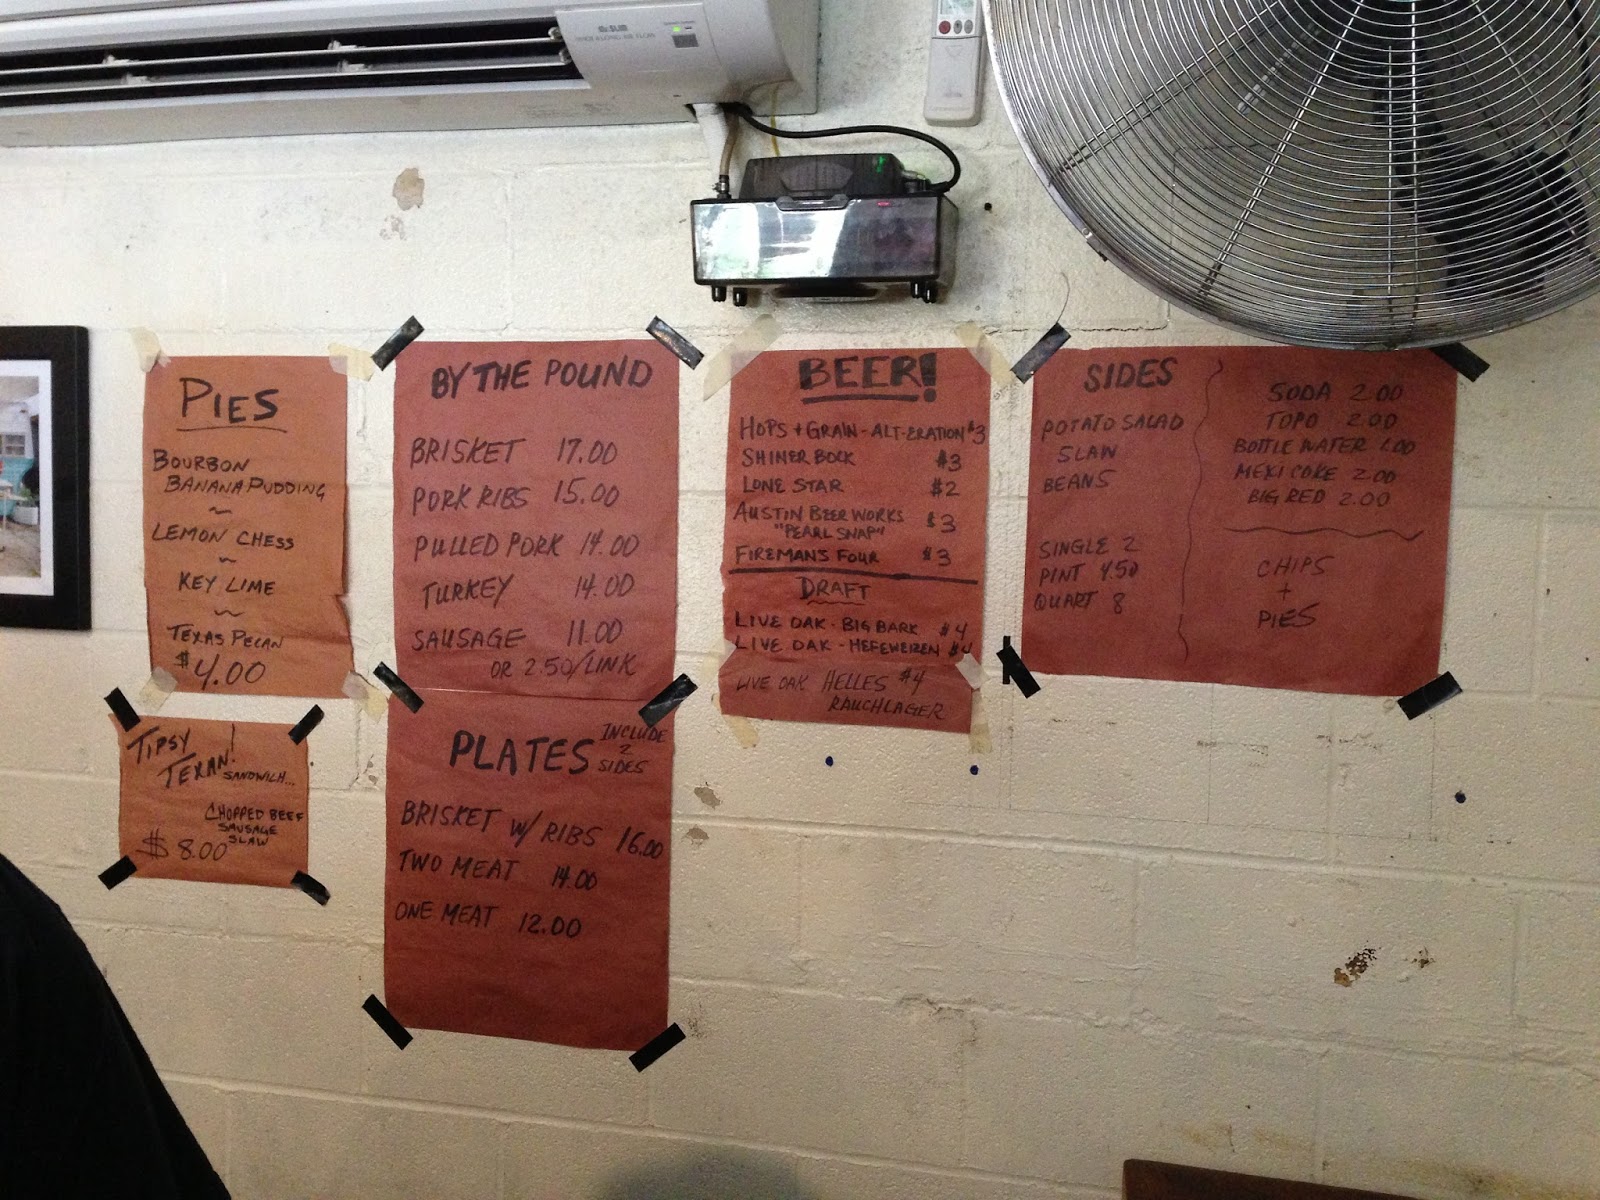 MR.SLIM
PIES
BOURBON
BANANA PUDDING
~
LEMON CHESS
~
KEY LIME
~
TEXAS PECAN
$4.00
TIPSY
TEXAN!
SANDWICH...
CHOPPED BEEF
SAUSAGE
SLAW
$8.00
BY THE POUND
BRISKET 17.00
PORK RIBS 15.00
PULLED PORK 14.00
TURKEY 14.00
SAUSAGE 11.00
OR 2.50/LINK
PLATES INCLUDE
2
SIDES
BRISKET W/ RIBS 16.00
TWO MEAT 14.00
ONE MEAT 12.00
BEER!
HOPS + GRAIN - ALT-ERATION $3
SHINER BOCK $3
LONE STAR $2
AUSTIN BEER WORKS $3
"PEARL SNAP"
FIREMANS FOUR $3
DRAFT
LIVE OAK - BIG BARK $4
LIVE OAK - HEFEWEIZEN $4
LIVE OAK HELLES $4
RAUCHLAGER
SIDES
POTATO SALAD
SLAW
BEANS
SINGLE 2
PINT 4.50
QUART 8
SODA 2.00
TOPO 2.00
BOTTLE WATER 1.00
MEXI COKE 2.00
BIG RED 2.00
CHIPS
+
PIES